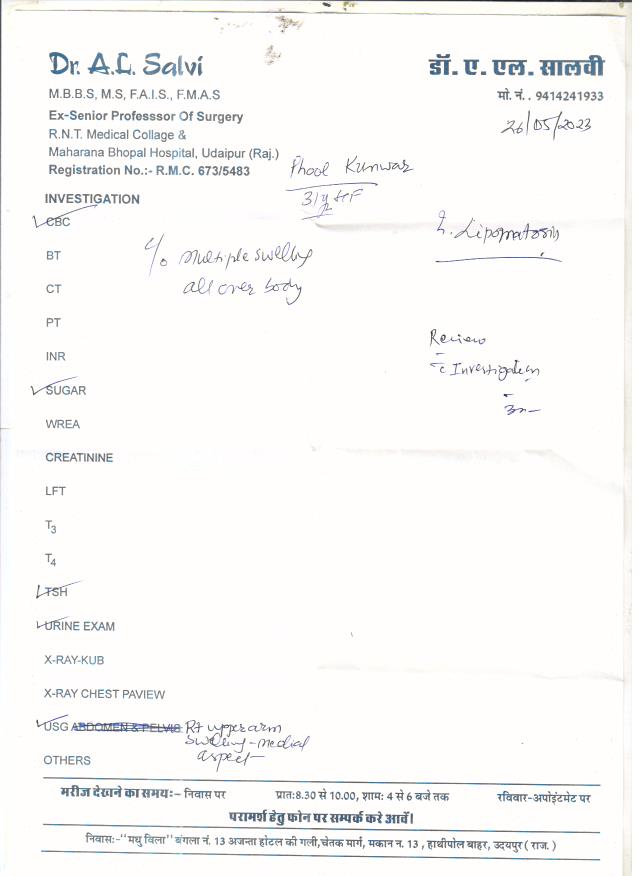 Dr. A.L. Salvi
M.B.B.S, M.S, F.A.I.S., F.M.A.S
Ex-Senior Professsor Of Surgery
R.N.T. Medical Collage &
Maharana Bhopal Hospital, Udaipur (Raj.)
Registration No.:- R.M.C. 673/5483
डॉ. ए. एल. सालवी
मो. नं. . 9414241933
26/05/2023
Phool Kunwar
INVESTIGATION
CBC
BT
CT
PT
INR
SUGAR
WREA
CREATININE
LFT
T3
T4
TSH
URINE EXAM
X-RAY-KUB
X-RAY CHEST PAVIEW
USG ABDOMEN & PELVIS Rt upper arm
swelling - medial
aspect
OTHERS
c/o multiple swelling
all over body
Lipomatosis
Review
c Investigation
मरीज देखने का समय:– निवास पर प्रात:8.30 से 10.00, शाम: 4 से 6 बजे तक रविवार-अपोइंटमेट पर
परामर्श हेतु फोन पर सम्पर्क करे आवें।
निवास:-"मधु विला" बंगला नं. 13 अजन्ता होटल की गली,चेतक मार्ग, मकान न. 13 , हाथीपोल बाहर, उदयपुर ( राज. )